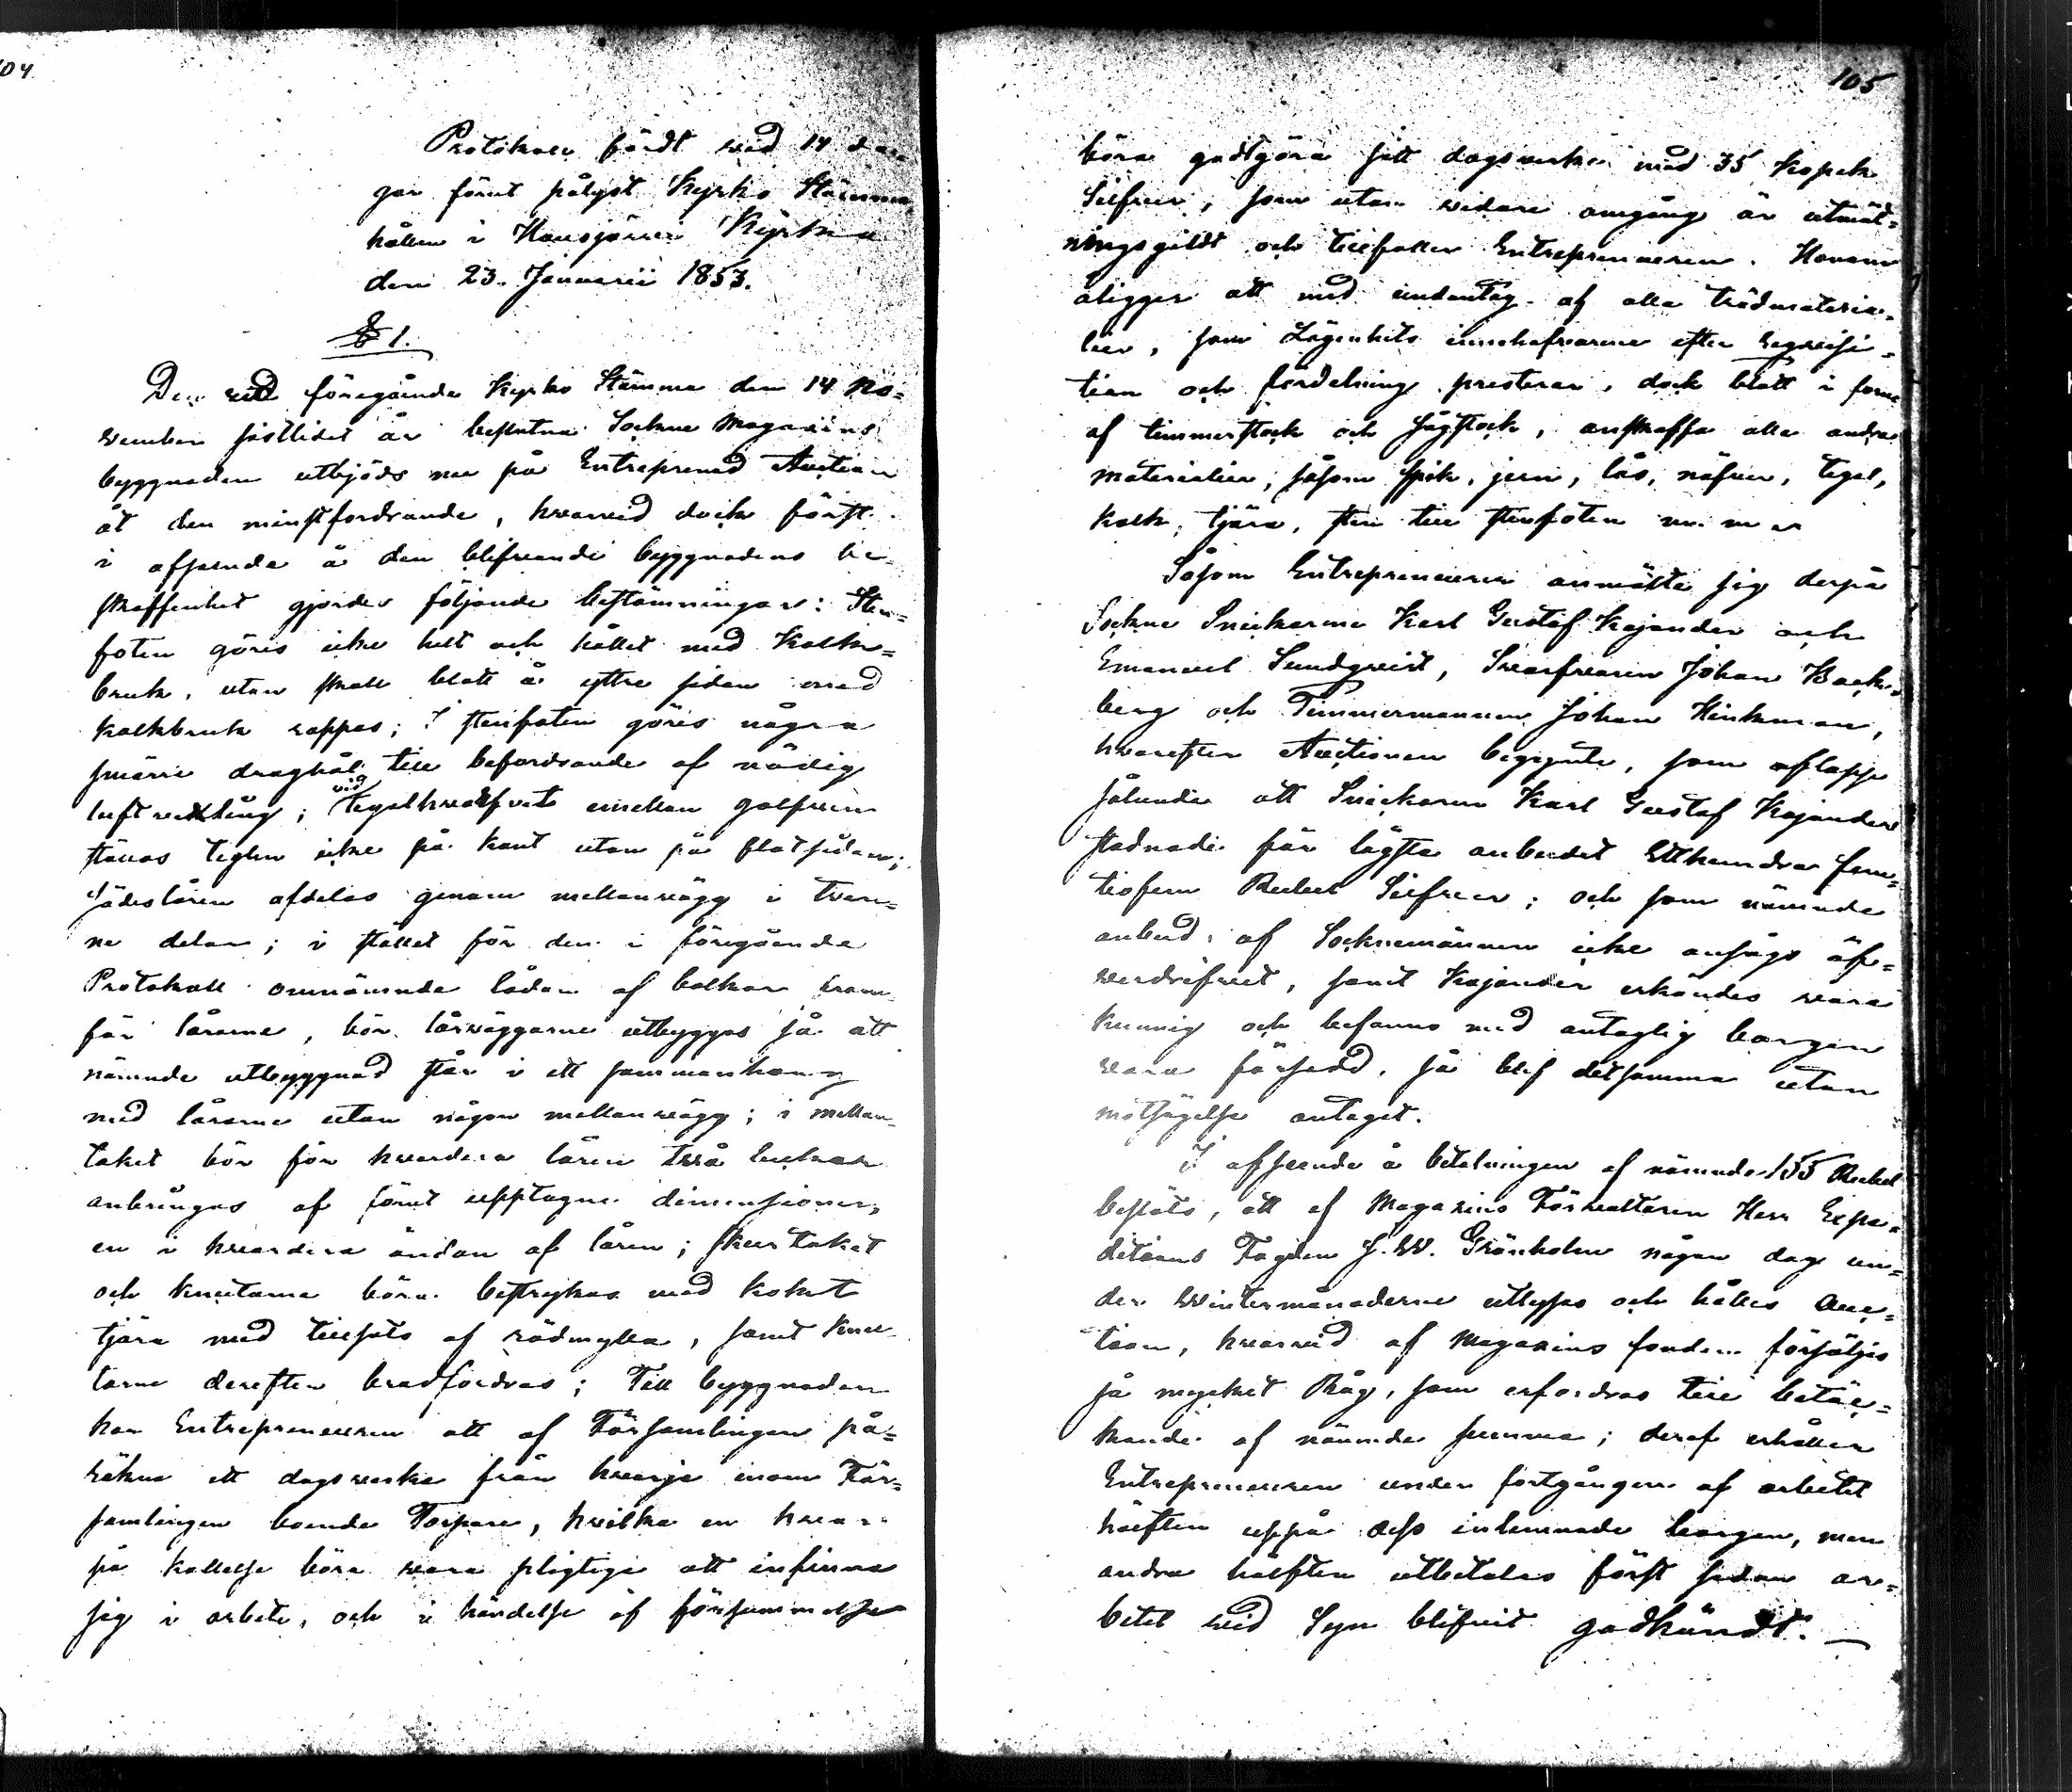 104
Protokoll fördt wid 14 da-
gar förut pålyst Kyrko Stämma,
hållen i Hausjärwi Kyrka
den 23. Januarii 1853.
§ 1.
Den wid föregående Kyrko Stämma den 14 No=
wember sistlidet år beslutna Sockne Magazins
byggnaden utbjöds nu på Entreprenad Auction
åt den minstfordrande, hwarwid dock först
i afseende å den blifwande byggnadens be-
skaffenhet gjordes följande bestämningar: Sten=
foten göres icke helt och hållet med Kalk=
bruk, utan skall blott å yttre sidan med
kalkbruk rappas; I stenfoten göres några
smärre draghål till befordrande af nödig
luftvexling; vid Tegelhwalfvet emellan golfwen
ställas teglen icke på kant utan på flatsidan;
Sädeslåren afdelas genom mellanwägg i twen=
ne delar; i stället för den i föregående
Protokoll omnämnde lådan af balkar fram-
för lårarne, bör lårwäggarne utbyggas så att
nämnde utbyggnad står i ett sammanhang
med lårarne utan någon mellanwägg; i mellan-
taket bör för hwardera låren twå luckor
anbringas af förut upptagne dimensioner,
en i hwardera ändan af låren; skurtaket
och knutarne böra bestrykas med kokt
tjära med tillsats af rödmylla, samt knu-
tarne derefter brädfodras; Till byggnaden
har Entrepreneuren att af Församlingen på=
räkna ett dagswerke från hwarje inom För=
samlingen boende Torpare, hwilka en hwar
på kallelse böra wara pligtige att infinna
sig i arbete, och i händelse af försummelse
105
böra godtgöra sitt dagswerke med 35 Kopek
Silfwer, som utan widare omgång är utmät=
ningsgildt och tillfaller Entrepreneuren. Honom
åligger att med undantag af alla trädmateria=
lier, som Lägenhets innehafwarne efter Reqvisi=
tion och fördelning prestera, dock blott i form
af timmerstock och sågstock, anskaffa alla andra
materialier, såsom spik, jern, lås, näfwer, tegel,
kalk, tjära, sten till stenfoten m. m.
Såsom Entrepreneurer anmälte sig derpå
Sockne Snickarne Karl Gustaf Kajander och
Emanuel Sundqvist, Swarfwaren Johan Back=
berg och Timmermannen Johan Hinkman,
hwarefter Auctionen begynte, som aflopp
sålunda att Snickaren Karl Gustaf Kajander
stadnade för lägsta anbudet Etthundra fem=
tiofem Rubel Silfwer; och som nämnde
anbud af Socknemännen icke ansågs öf=
werdrifwet, samt Kajander erkändes wara
kunnig och befanns med antaglig borgen
wara försedd, så blef detsamma utan
motsägelse antaget.
I afseende å betalningen af nämnde 155 Rubel
beslöts, att af Magazins Förwaltaren Herr Expe=
ditions Fogden J. W. Grönholm någon dag un=
der Wintermånaderne utlyses och hålles Auc=
tion, hwarwid af Magazins fonden försäljes
så mycket Råg, som erfordras till betäc=
kande af nämnde summa; deraf erhåller
Entrepreneuren under fortgången af arbetet
hälften uppå dess inlemnade borgen, men
andra hälften utbetales först sedan ar=
betet wid Syn blifwit godkändt.